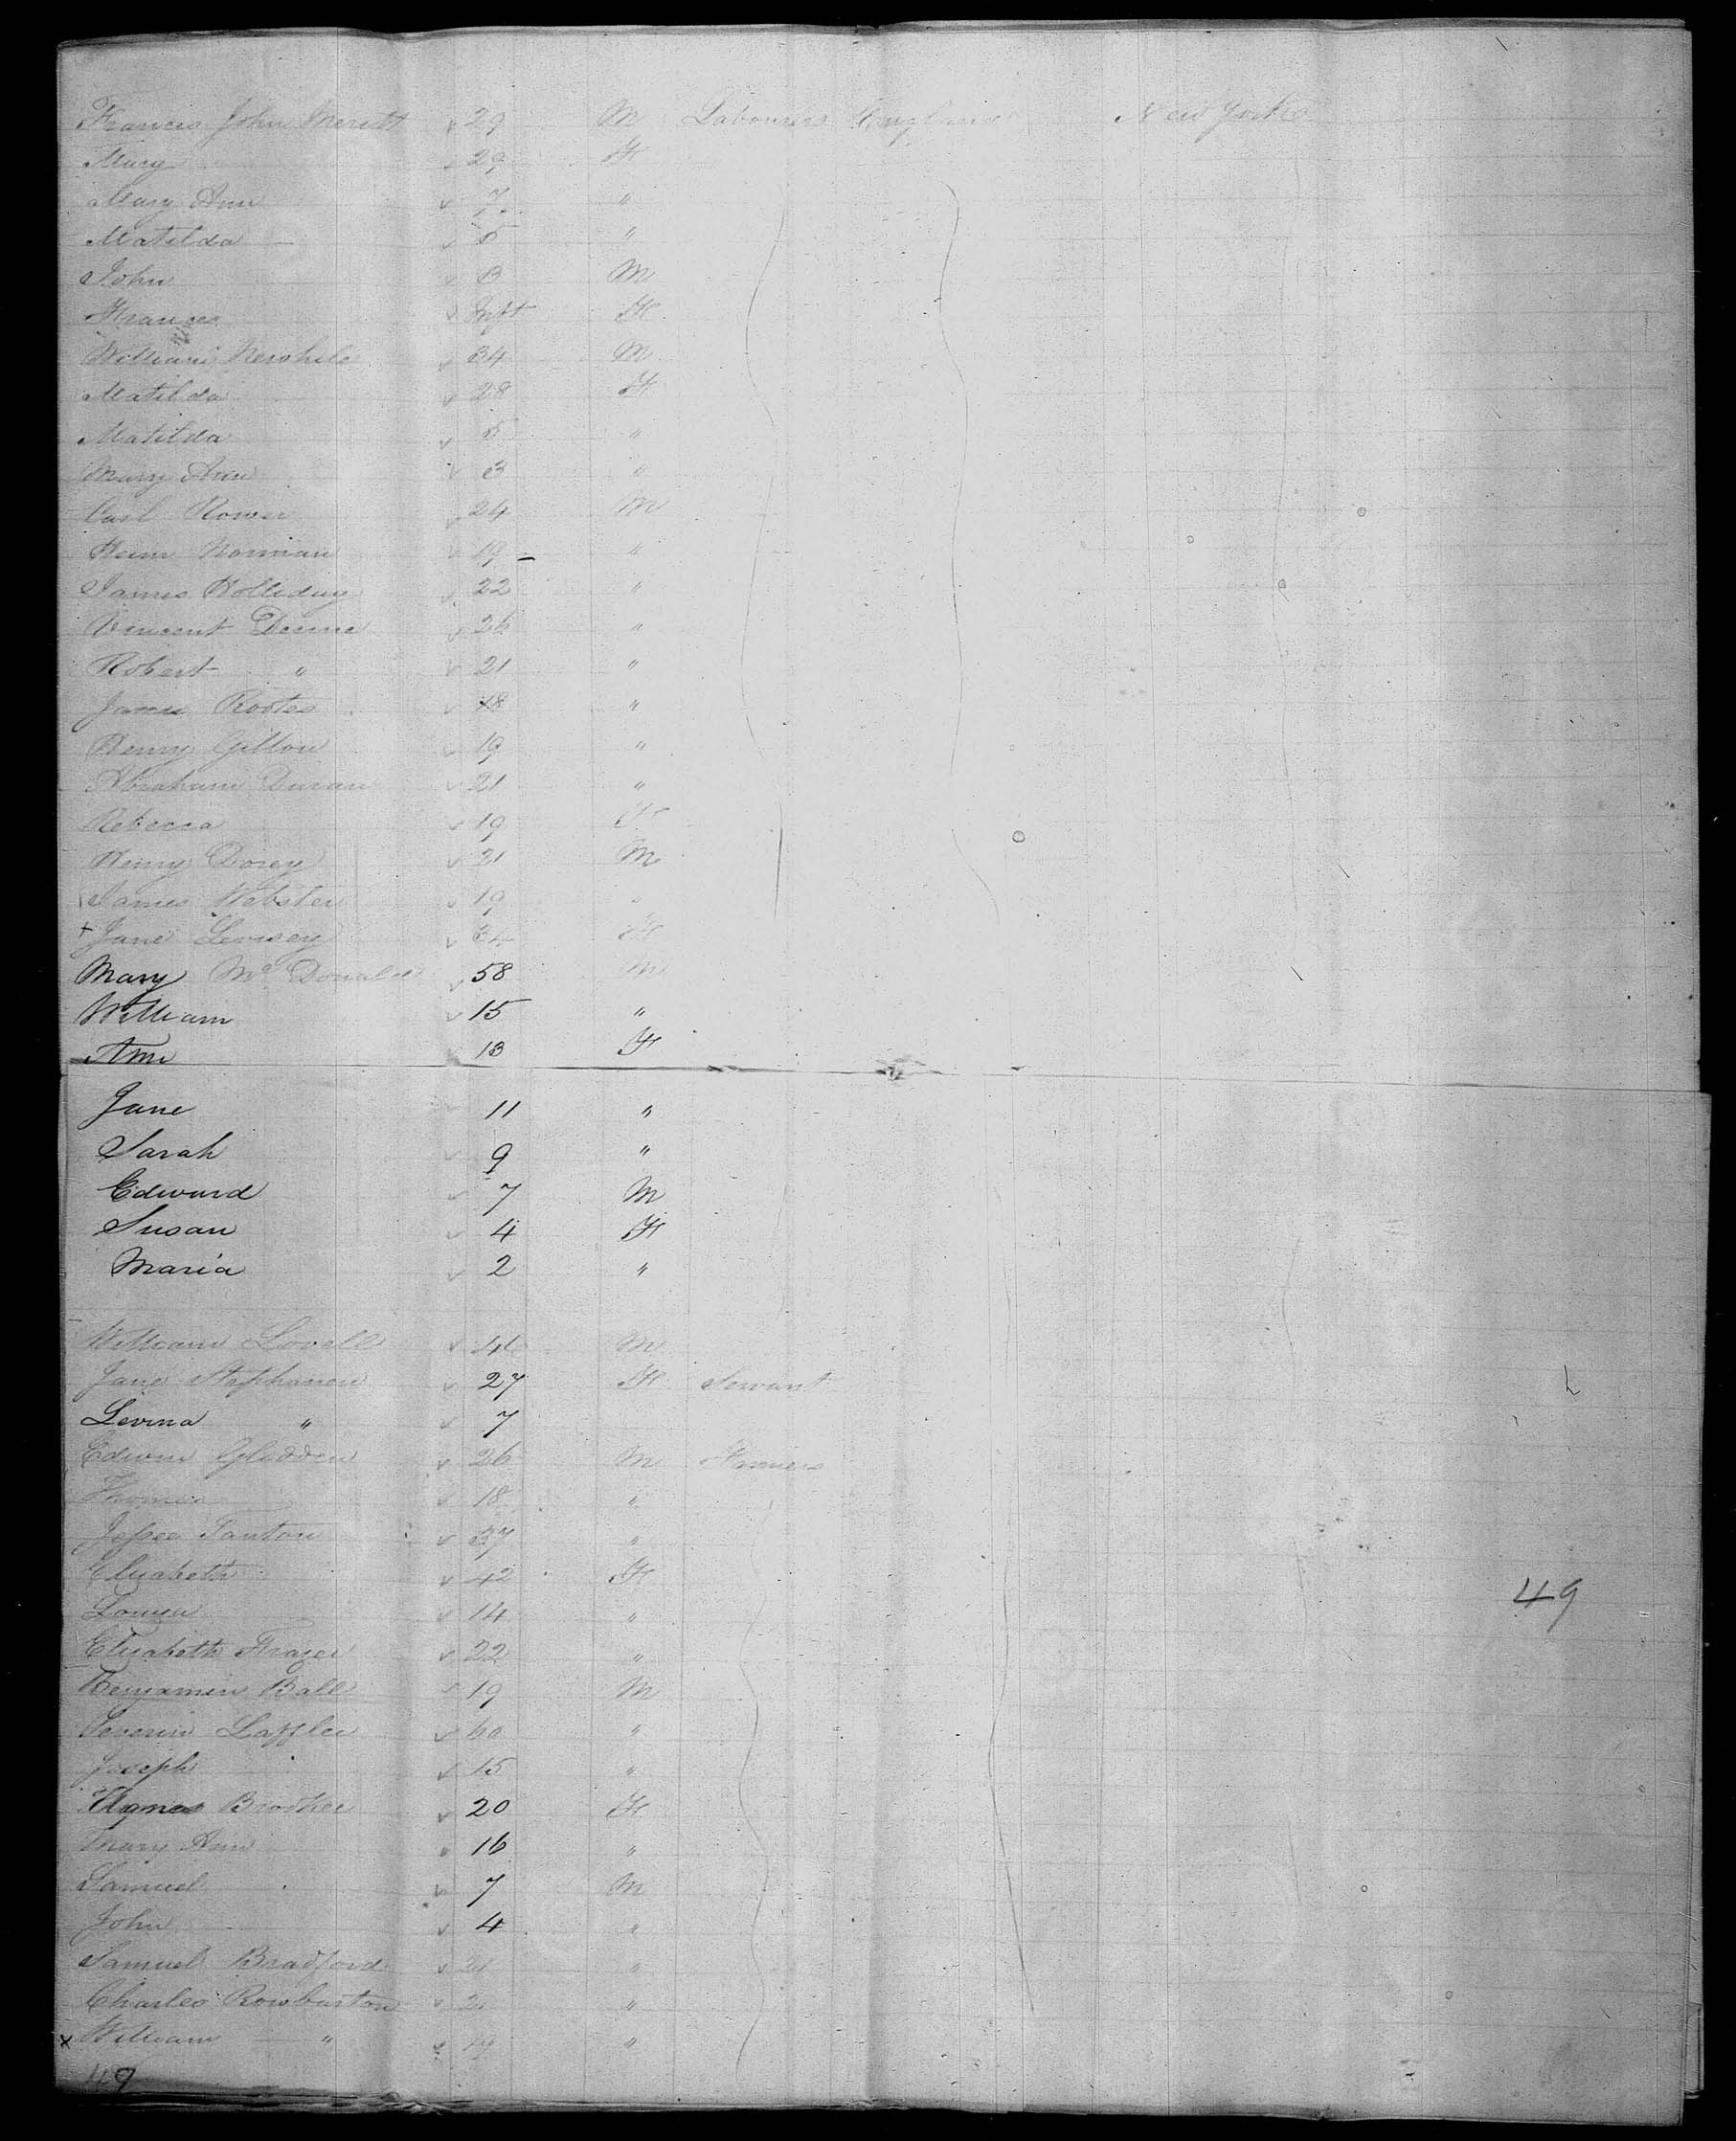 Francis John Meritt 29 M Labourers England New York
Mary 29 F
Mary Ann 7 "
Matilda 5 "
John 3 M
Frances Inft F
William 34 M
Matilda 28 F
Matilda 5 "
Mary Ann 3 "
Carl 24 M
Norman 19 "
James Holliday 22 "
Vincent Denne 26 "
Robert " 21 "
James Rootes 18 "
Henry Gillow 19 "
Abraham 21 "
Rebecca 19 F
Henry Dorey 21 M
James Webster 19 "
Jane Levisey 34 F
Mary McDonald 58 M
William 15 "
Ann 13 F
Jane 11 "
Sarah 9 "
Edward 7 M
Susan 4 F
Maria 2 "
William Lovell M
Jane 27 F Servant
Levina " 7
Edwin Glidden 26 M Farmers
Thomas 18 "
Jessee Tanton 37 "
Elizabeth 42 F
Louisa 14 "
49
Elizabeth Frazer 22 "
Benjamin Ball 19 M
60 "
Joseph 15 "
Agnes 20 F
Mary Ann 16 "
Samuel 7 M
John 4 "
Samuel Bradford 21 "
Charles "
William " 19 "
49